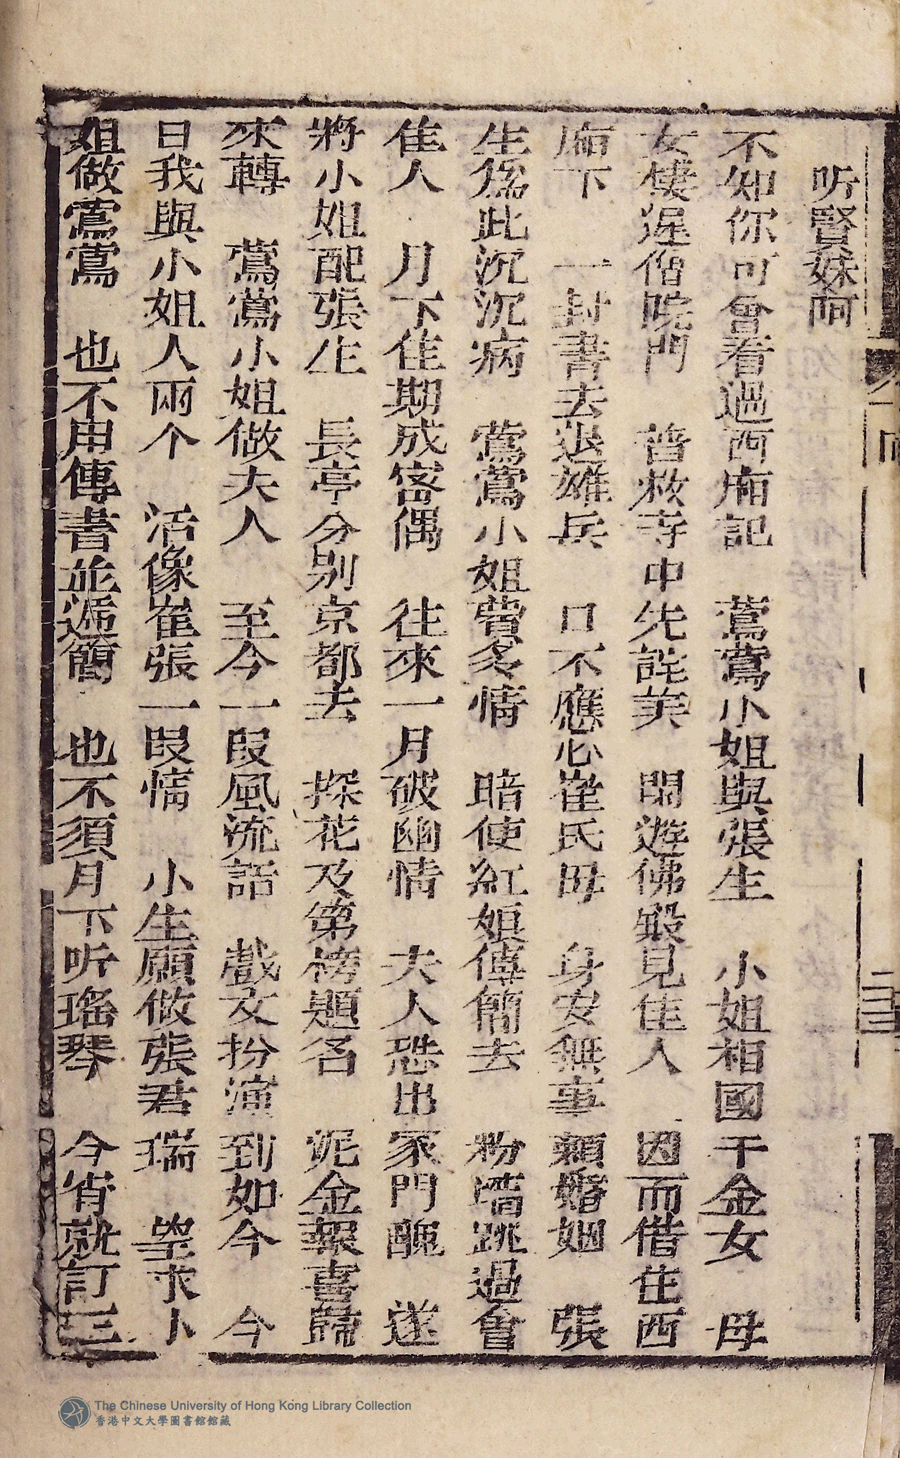 听賢妹呵
不知你可會看過西廂記　鶯鶯小姐與張生　小姐相國千金女　母
女悽遲僧院門　普救寺中先詫美　閑遊佛殿見佳人　因而借住西
廂下　一封書去退雄兵　口不應心崔氏毋　身安無事賴婚姻　張
生為此沉沉病　鶯鶯小姐費多情　暗使紅娘傳簡去　粉墻跳過會
佳人　月下佳期成密偶　往來一月破幽情　夫人恐出家門醜　遂
將小姐配張生　長亭分別京都去　探花及第榜題名　泥金報喜歸
來轉　鶯鶯小姐做夫人　至今一叚風流話　戲文扮演到如今　今
日我與小姐人兩个　活像崔張一叚情　小生願做張君瑞　望求小
姐做鶯鶯　也不用傳書並遞簡　也不須月下听瑤琴　今宵就訂三
二三
The Chinese University of Hong Kong Library Collection
香港中文大學圖書館館藏